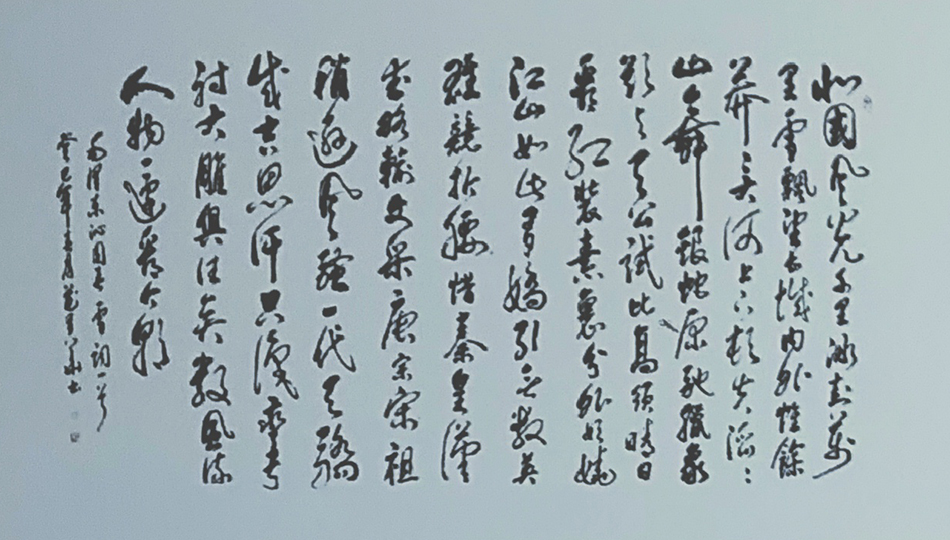 北國風光千里冰封萬
里雪飄望長城內外惟餘
莽々大河上下頓失滔々
山舞銀蛇原馳臘象
欲與天公試比高須晴日
看紅裝素裹分外妖嬈
江山如此多嬌引無數英
雄競折腰惜秦皇漢
武略輸文采唐宗宋祖
稍遜風騷一代天驕
成吉思汗只識彎弓
射大雕俱往矣數風流
人物還看今朝
毛澤東沁園春雪詞一首
癸巳年月書